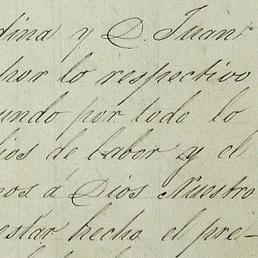 dina y D. Juan
por lo respectivo
undo por todo lo
ios de labor y el
nos á Dios Nuestro
estár hecho el pre-